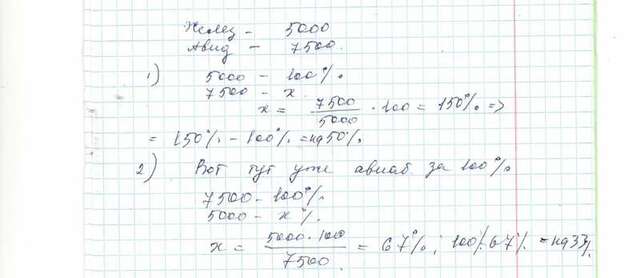 Желез - 5000
Авиа - 7500
1) 5000 - 100%
7500 - x
x = 7500/5000 · 100 = 150% =>
= 150% - 100% = на 50%
2) Вот тут уже авиаб за 100%
7500 - 100%
5000 - x%
x = 5000·100/7500 = 67%; 100% 67% = на 33%